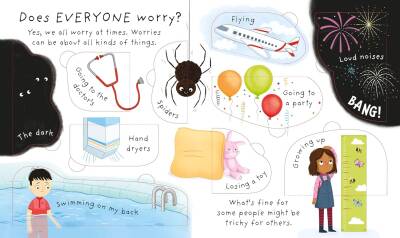 Does EVERYONE worry?
Yes, we all worry at times. Worries
can be about all kinds of things.
Flying
Loud noises
BANG!
Going to
the doctor's
Spiders
Going to
a party
The dark
Hand
dryers
Losing a toy
Growing up
Swimming on my back
What's fine for
some people might be
tricky for others.